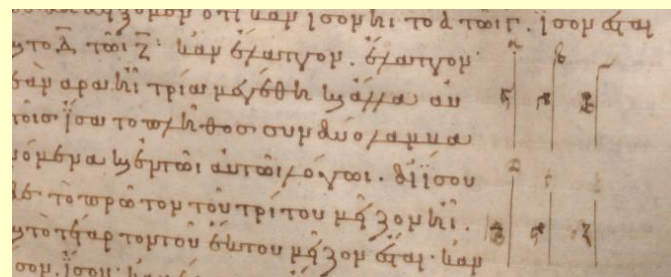 μεῖζον ὅτι κἂν ἴσον ἦι τὸ α τῶι γ. ἴσον ἔσται
κ τὸ Δ τῶι Ζ· κἂν ἔλαττον. ἔλαττον·
ἐὰν ἄρα ἦι τρία μεγέθη κ ἄλλα αὐ
τοῖς ἴσα τὸ πλῆθος σύνδυο λαμβα
νόμενα κ ἐν τῶι αὐτῶι λόγωι. δι ἴσου
δὲ τὸ πρῶτον τοῦ τρίτου μεῖζον ἦι.
κ τὸ τέταρτον τοῦ ἕκτου μεῖζον ἔσται· κἂν
ἴσον. ἴσον· κἂν
α β γ